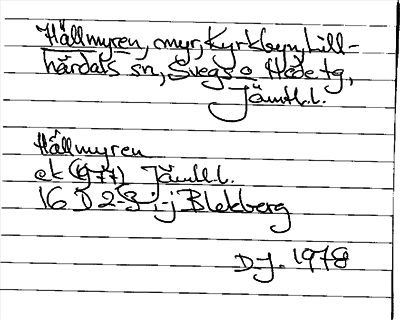 Hällmyren, myr, Kyrkbyn, Lill-
härdals sn, Svegs o Hede tg,
Jämtl.l.
Hällmyren
ek (1977) Jämtl.l.
16 D 2-3 i-j Blekberg
D-J. 1978